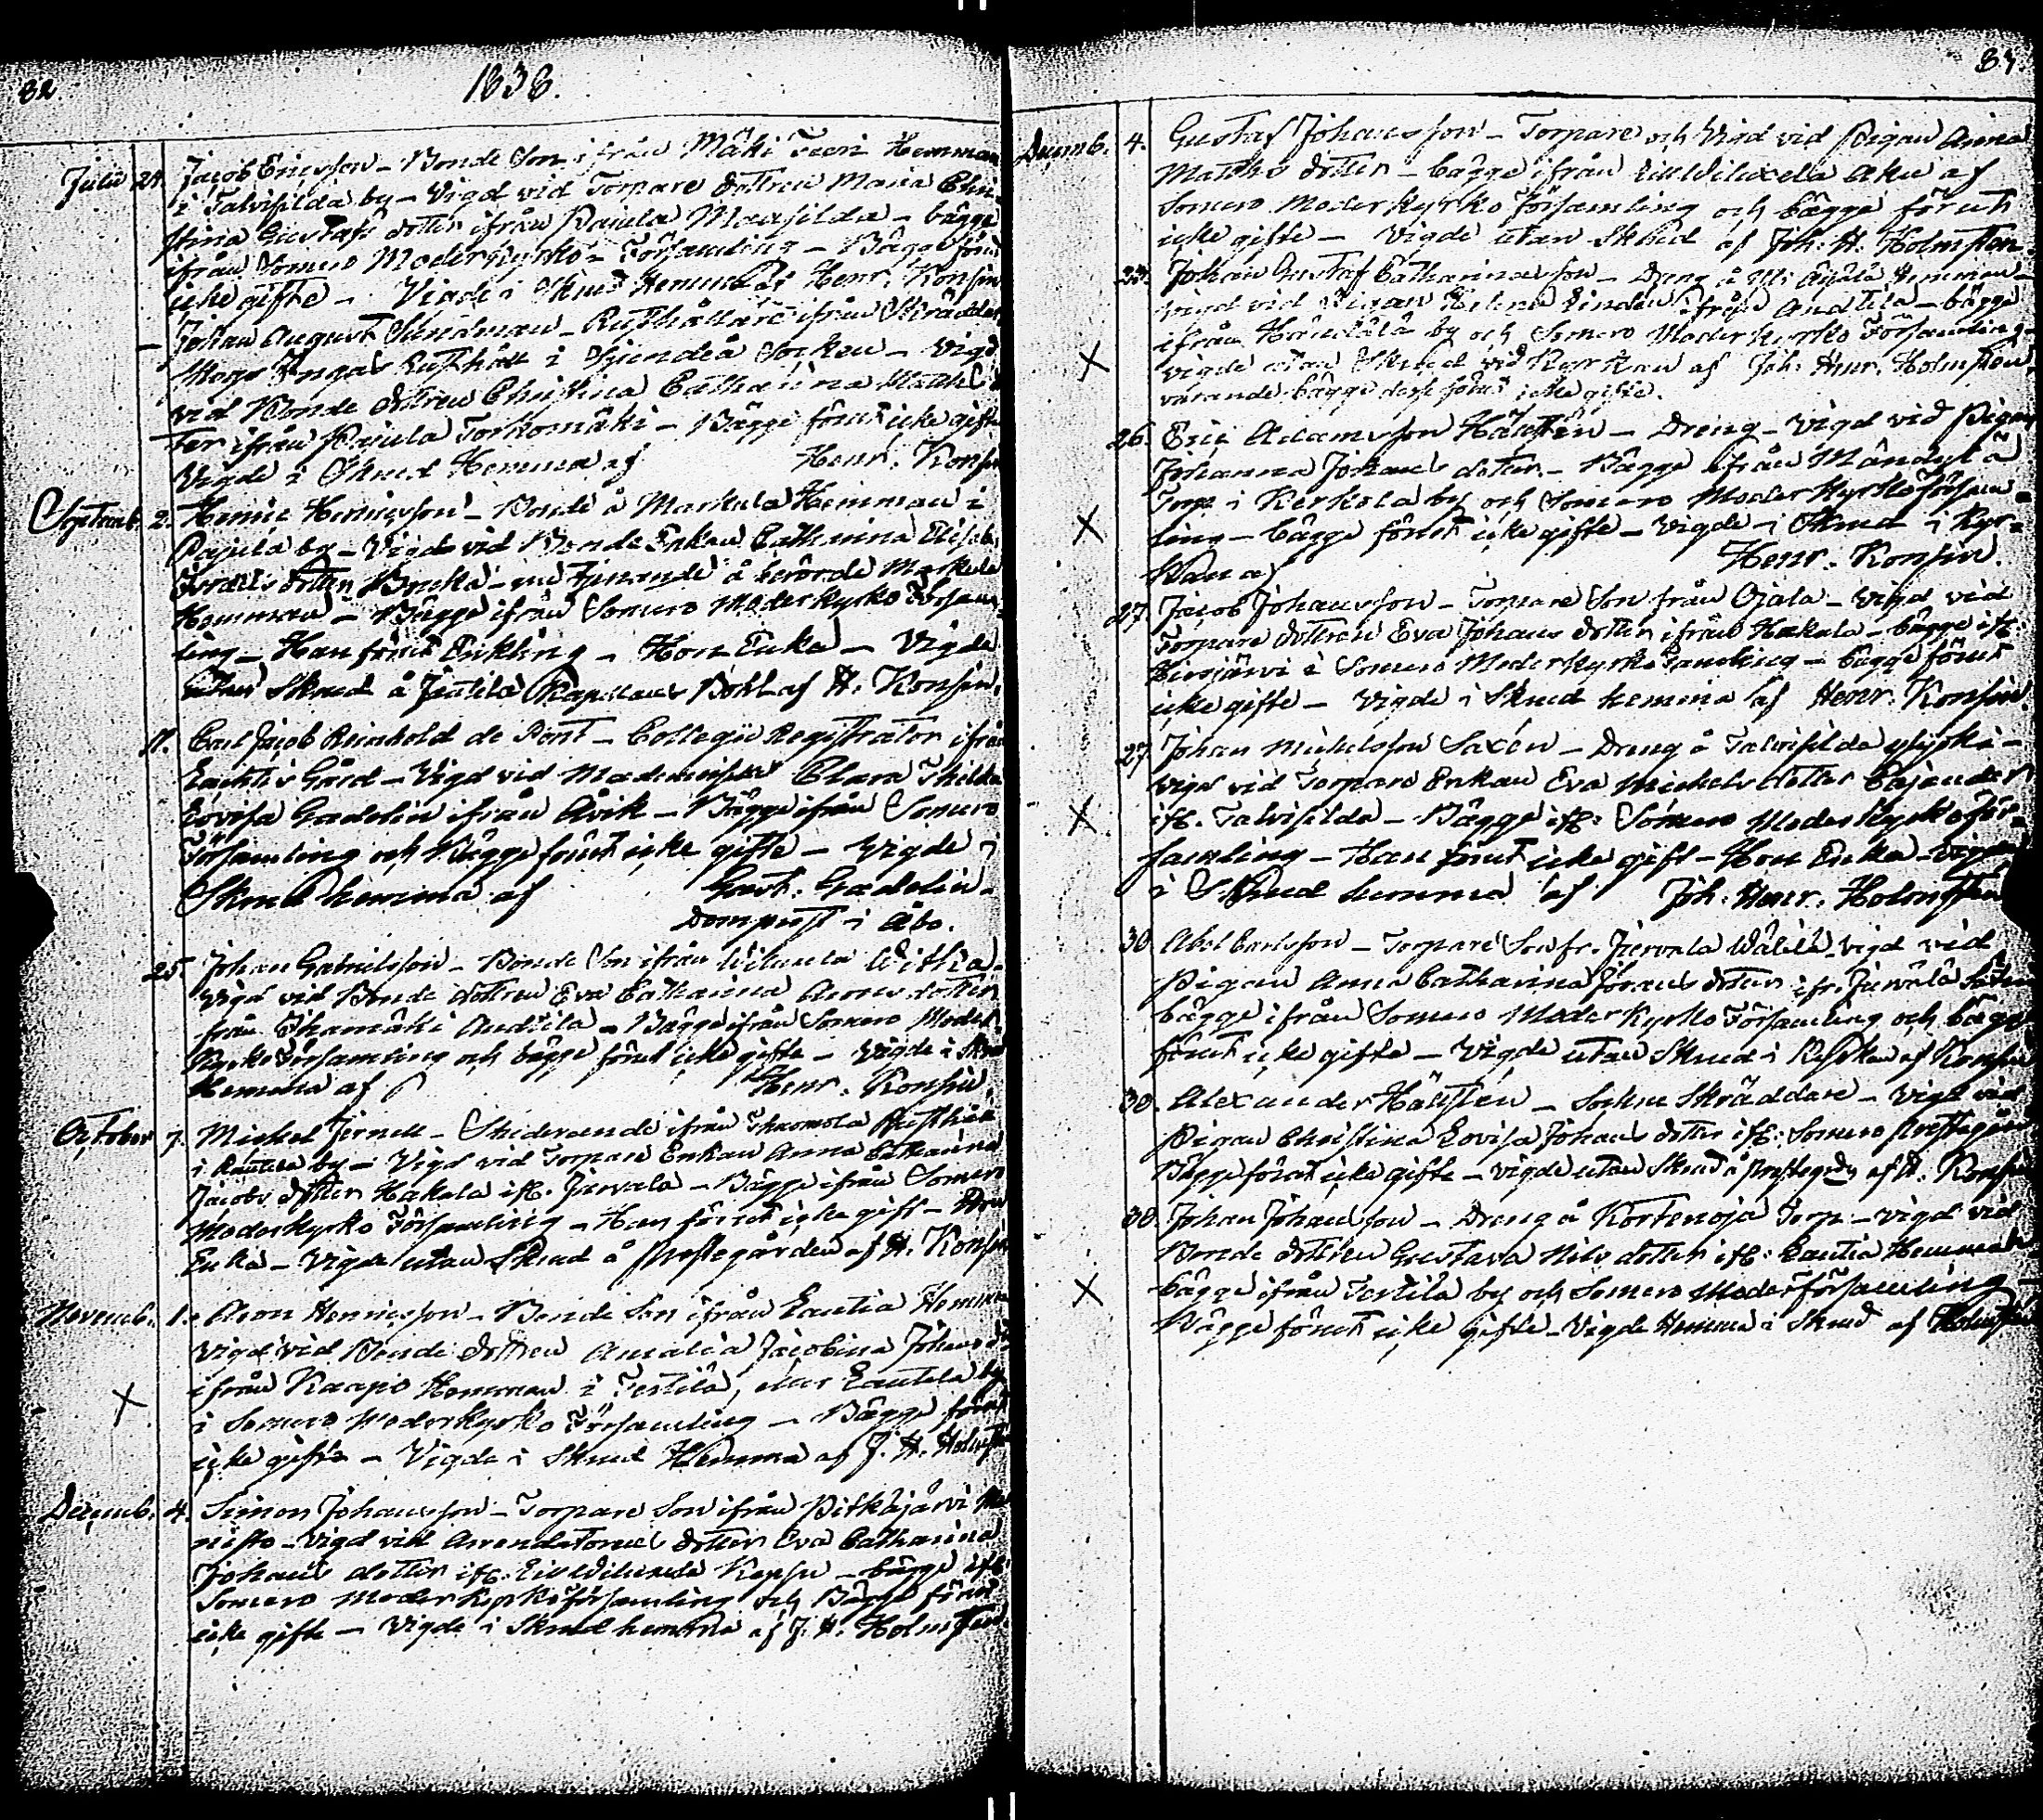 82.
1838.
Julii 24. Jacob Ericsson - Bonde Son ifrån Mäki Heman
i Talvisilda by - Vigd vid Torpare dottren Maria Chri-
stina Gustafs dotter ifrån Pajula Maasilda - bägge
ifrån Somero Moderkyrko Församling - Bägge förut
icke gifte - Vigde i Skrud Hemma af Henr. Konsin
- Johan August Sandman - Rusthållare ifrån Skräddar
Rusthåll i Sjundeå Socken - Vigd
vid Bonde dottren Christina Catharina Matths dot-
ter ifrån Pajula Torkomäki - Bägge förut icke gifte
Vigde i Skrud Hemma af Henr. Konsin
Septemb. 2. Henric Henricsson - Bonde å Markula Hemman i
Pajula by - Vigd vid Bonde Enkan Catharina Elisab.
Israels dotter nu tjenande å berörde Markula
Hemman - Bägge ifrån Somero Moderkyrko Försam-
ling - Han förut Enkling - Hon Enka - Vigde
utan Skrud å Jaatila Kapellans Bohl af H. Konsin.
11. Carl Jacob Reinhold de Pont - Collegii Registrator ifrån
Lahtis Gård - Vigd vid Mademoiselle Clara Thilda
Lovisa Gadolin ifrån Åvik - Bägge ifrån Somero
Församling och Bägge förut icke gifte - Vigde i
Skrud hemma af Gust. Gadolin.
Domprost i Åbo.
25. Johan Gabrielsson - Bonde Son ifrån Wiluxela Withia.
Vigd vid Bonde dottren Eva Catharina Arons dotter
från Ihamäki Andtila - Bägge ifrån Somero Moder-
Kyrko Församling och bägge förut icke gifte - Vigde i Skrud
Hemma af Henr. Konsin.
October 7. Mickel Jernell - ifrån Rusthåll
i Rautela by - Vigd vid Torpare Enkan Anna Catharina
Jacobs dotter Hakala ifr. Jurvala - Bägge ifrån Somero
Moderkyrko Församling - Han förut icke gift - Hon
Enka - Vigde utan Skrud å Prestegården af H. Konsin
Novemb. 1. Aron Henricsson - Bonde Son ifrån Lautia Hemman
Vigd vid Bonde dottren Amalia Jacobina Johans d:r
ifrån Kaapo Hemman i Terttilä, eller Lautela by
X i Somero Moderkyrko Församling - Bägge förut
icke gifte - Vigde i Skrud Hemma af J. H. Holmsten
Decemb. 4. Simon Johansson - Torpare Son ifrån Pitkäjärvi
- Vigd vid Arrendatorns dotter Eva Catharina
Johans dotter ifr. Keppu - bägge ifr.
Somero Moderkyrkoförsamling och Bägge förut
icke gifte - Vigde i Skrud hemma af J. H. Holmsten.
83.
Decemb. 4. Gustaf Johansson - Torpare och Vigd vid Pigan Anna
Matths dotter - bägge ifrån Aku af
Somero Moderkyrko Församling och bägge förut
icke gifte - Vigde utan Skrud af Joh. H. Holmsten
Johan Gustaf Catharinæ son - Dreng å Hemman -
vigd vid Pigan Helena Lindén ifrån Andtila - bägge
ifrån by och Somero Moderkyrko Församling -
X vigde utan Skrud vid Kyrkan af Joh. Henr. Holmsten,
varande bägge desse förut icke gifte.
26. Eric Adamsson Hällstén - Dreng - Vigd vid Pigan
Johanna Johans dotter - Bägge ifrån
Torp i Kerkola by och Somero Moderkyrko Försam-
X ling - bägge förut icke gifte - Vigde i Skrud i Kyr-
kan af Henr. Konsin.
27. Jacob Johansson - Torpare Son från Ojala - vigd vid
Torpare dottren Eva Johans dotter ifrån Hakala - bägge ifr.
Hirsjärvi i Somero Moderkyrko Samling - bägge förut
icke gifte - Vigde i Skrud hemma af Henr. Konsin.
27. Johan Michelsson Saxén - Dreng å Talvisilda Yliyski -
Vigd vid Torpare Enkan Eva Michels dotter Cajander
X ifr. Talvisilda - Bägge ifr. Somero Moderkyrkoför-
samling - Han förut icke gift - Hon Enka - Vigde
i Skrud hemma af Joh. Henr. Holmsten
30. Abel Carlsson - Torpare Son fr. Jurvala - Vigd vid
Pigan Anna Catharina Jörans dotter ifr. Jurvala
bägge ifrån Somero Moderkyrko Församling och bägge
förut icke gifte - Vigde utan Skrud i Kyrkan af Konsin
30. Alexander Hällstén - Sockne Skräddare - Vigd vid
Pigan Christina Lovisa Johans dotter ifr. Somero Prestegård
Bägge förut icke gifte - vigde utan Skrud å Prestegården af H. Konsin
30. Johan Johansson - Dreng å Kortenoja Torp - vigd vid
Bonde dottren Gustava Nils dotter ifr. Lautia Hemman
X bägge ifrån Terttilä by och Somero Moderförsamling -
Bägge förut icke gifte - Vigde Hemma i Skrud af Holmsten